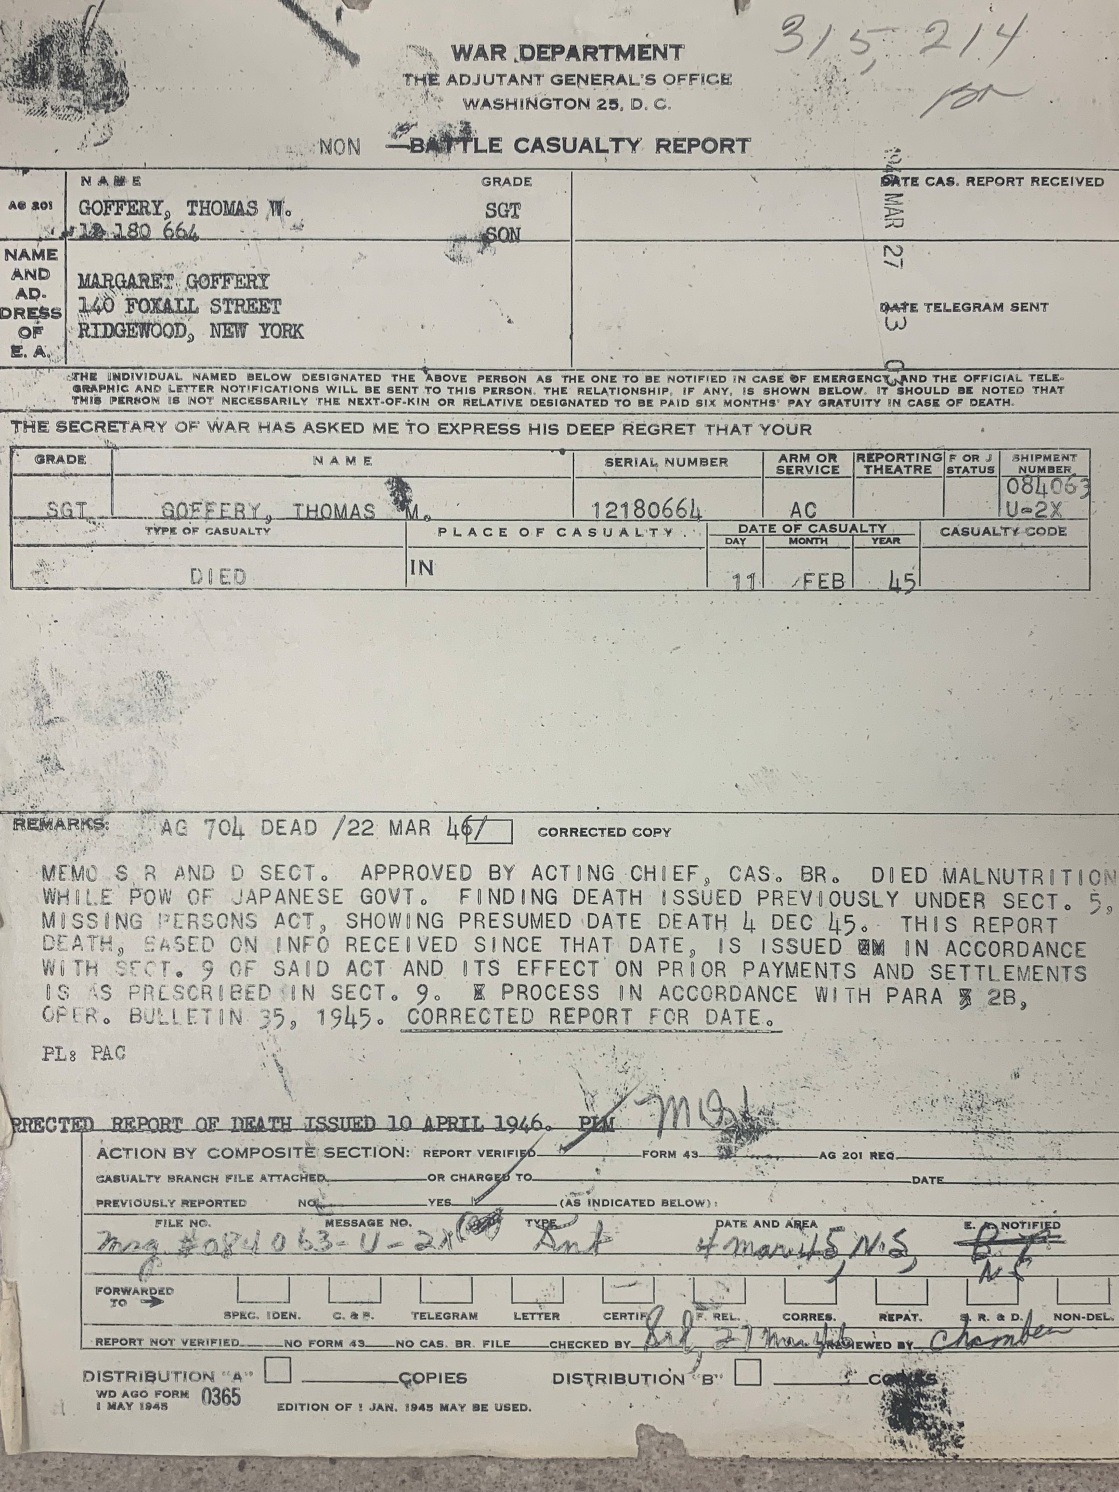 315, 214
WAR DEPARTMENT
THE ADJUTANT GENERAL'S OFFICE
WASHINGTON 25, D. C.
NON —BATTLE CASUALTY REPORT
NAME GRADE DATE CAS. REPORT RECEIVED
AG 201 GOFFERY, THOMAS W. SGT
12 180 664 SON
1946 MAR 27 13 03
NAME AND AD-DRESS OF E. A.
MARGARET GOFFERY
140 FOXALL STREET DATE TELEGRAM SENT
RIDGEWOOD, NEW YORK
THE INDIVIDUAL NAMED BELOW DESIGNATED THE ABOVE PERSON AS THE ONE TO BE NOTIFIED IN CASE OF EMERGENCY, AND THE OFFICIAL TELE-
GRAPHIC AND LETTER NOTIFICATIONS WILL BE SENT TO THIS PERSON. THE RELATIONSHIP, IF ANY, IS SHOWN BELOW. IT SHOULD BE NOTED THAT
THIS PERSON IS NOT NECESSARILY THE NEXT-OF-KIN OR RELATIVE DESIGNATED TO BE PAID SIX MONTHS' PAY GRATUITY IN CASE OF DEATH.
THE SECRETARY OF WAR HAS ASKED ME TO EXPRESS HIS DEEP REGRET THAT YOUR
GRADE NAME SERIAL NUMBER ARM OR SERVICE REPORTING THEATRE F OR J STATUS SHIPMENT NUMBER
084063
SGT GOFFERY, THOMAS M. 12180664 AC U-2X
TYPE OF CASUALTY PLACE OF CASUALTY DATE OF CASUALTY CASUALTY CODE
DAY MONTH YEAR
DIED IN 11 FEB 45
REMARKS: AG 704 DEAD /22 MAR 46/ CORRECTED COPY
MEMO S R AND D SECT. APPROVED BY ACTING CHIEF, CAS. BR. DIED MALNUTRITION
WHILE POW OF JAPANESE GOVT. FINDING DEATH ISSUED PREVIOUSLY UNDER SECT. 5,
MISSING PERSONS ACT, SHOWING PRESUMED DATE DEATH 4 DEC 45. THIS REPORT
DEATH, BASED ON INFO RECEIVED SINCE THAT DATE, IS ISSUED IN ACCORDANCE
WITH SECT. 9 OF SAID ACT AND ITS EFFECT ON PRIOR PAYMENTS AND SETTLEMENTS
IS AS PRESCRIBED IN SECT. 9. PROCESS IN ACCORDANCE WITH PARA 2B,
OPER. BULLETIN 35, 1945. CORRECTED REPORT FOR DATE.
PL: PAC
RRECTED REPORT OF DEATH ISSUED 10 APRIL 1946. PLM
ACTION BY COMPOSITE SECTION: REPORT VERIFIED FORM 43 AG 201 REQ.
CASUALTY BRANCH FILE ATTACHED OR CHARGED TO DATE
PREVIOUSLY REPORTED NO YES (AS INDICATED BELOW):
FILE NO. MESSAGE NO. TYPE DATE AND AREA E. A. NOTIFIED
Msg #084063-U-2X Dnt 4 Mar 45, N.S,
FORWARDED TO
SPEC. IDEN. C. & P. TELEGRAM LETTER CERTIF. F. REL. CORRES. REPAT. S. R. & D. NON-DEL.
REPORT NOT VERIFIED NO FORM 43 NO CAS. BR. FILE CHECKED BY 27 Mar 46 REVIEWED BY Chamber
DISTRIBUTION "A" COPIES DISTRIBUTION "B" COPIES
WD AGO FORM 0365
1 MAY 1945 EDITION OF 1 JAN. 1945 MAY BE USED.